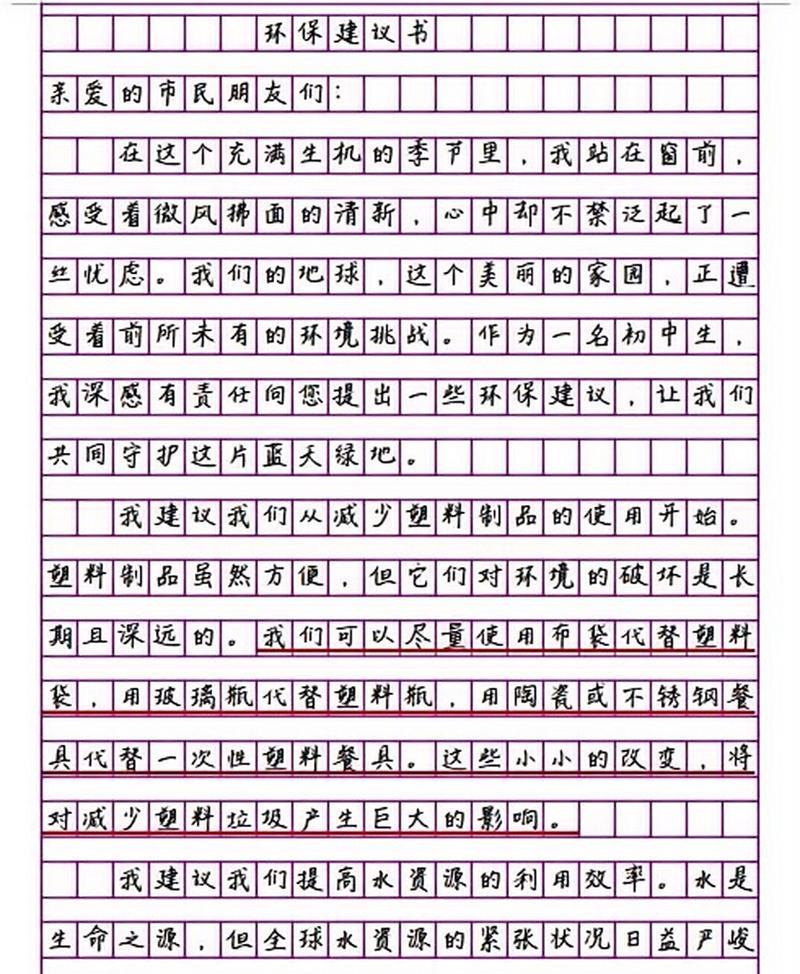 环保建议书
亲爱的市民朋友们：
在这个充满生机的季节里，我站在窗前，
感受着微风拂面的清新，心中却不禁泛起了一
丝忧虑。我们的地球，这个美丽的家园，正遭
受着前所未有的环境挑战。作为一名初中生，
我深感有责任向您提出一些环保建议，让我们
共同守护这片蓝天绿地。
我建议我们从减少塑料制品的使用开始。
塑料制品虽然方便，但它们对环境的破坏是长
期且深远的。我们可以尽量使用布袋代替塑料
袋，用玻璃瓶代替塑料瓶，用陶瓷或不锈钢餐
具代替一次性塑料餐具。这些小小的改变，将
对减少塑料垃圾产生巨大的影响。
我建议我们提高水资源的利用效率。水是
生命之源，但全球水资源的紧张状况日益严峻